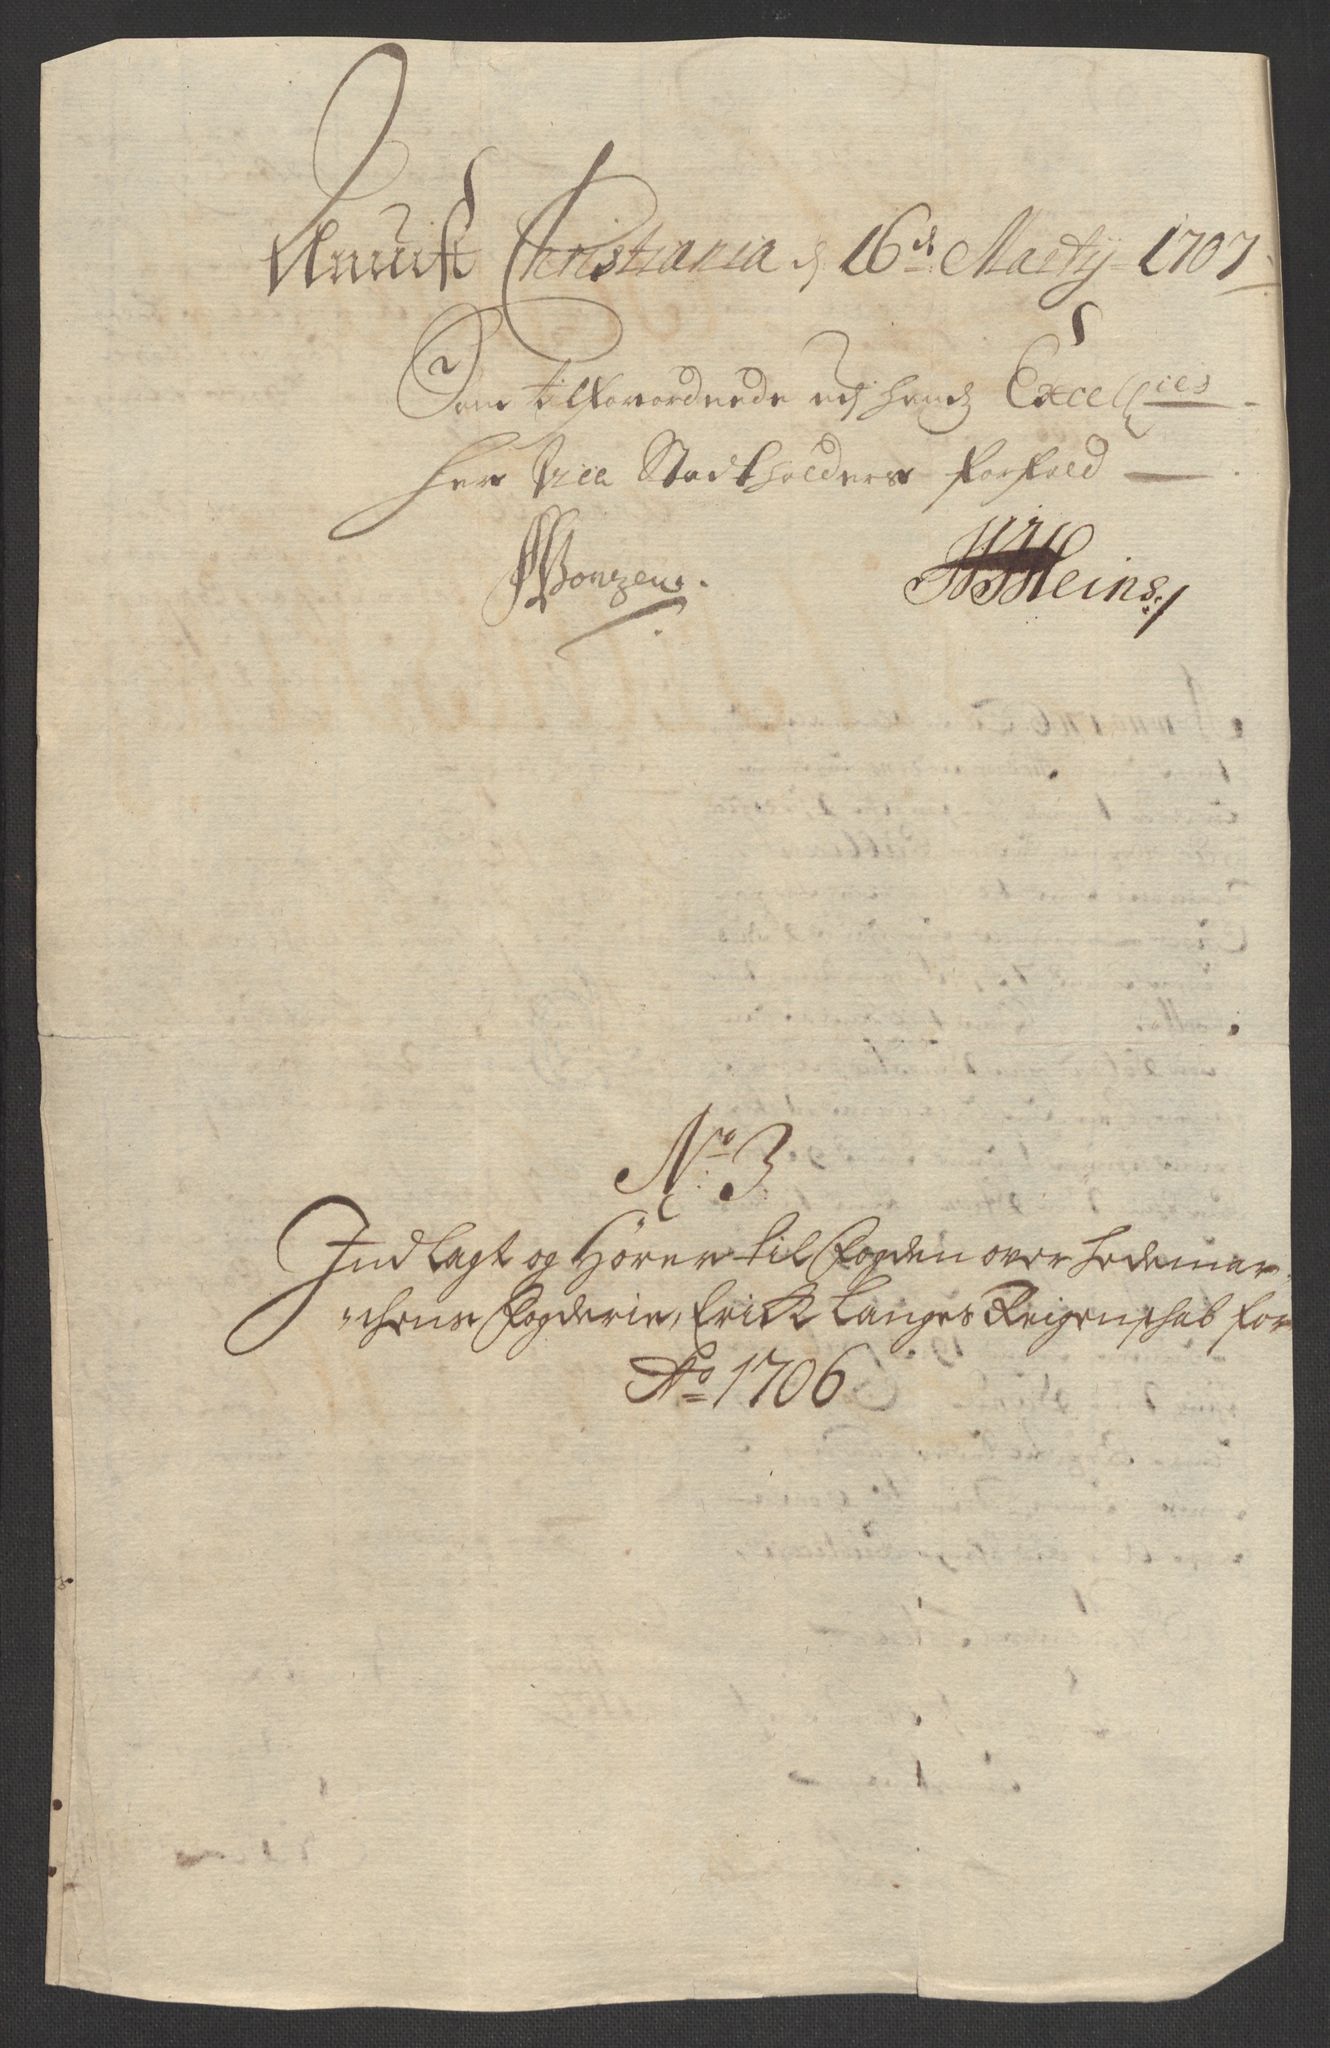 Christiania d 16de Martij 1707
Som tilforordnede udj hands Excell:ies
Herr Vice Stadtholders forfald
PBonzen.
Heins
No 3
Indlagt og Hörer til Fogden over Hedemar-
chens Fogderie, Erick Langes Reigenschab for
Ao 1706